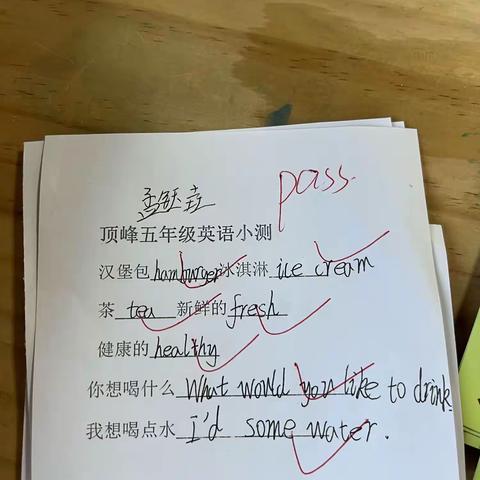 孟钰垚
pass.
顶峰五年级英语小测
汉堡包 hamburger 冰淇淋 ice cream
茶 tea 新鲜的 fresh
健康的 healthy
你想喝什么 What would you like to drink
我想喝点水 I'd some water.